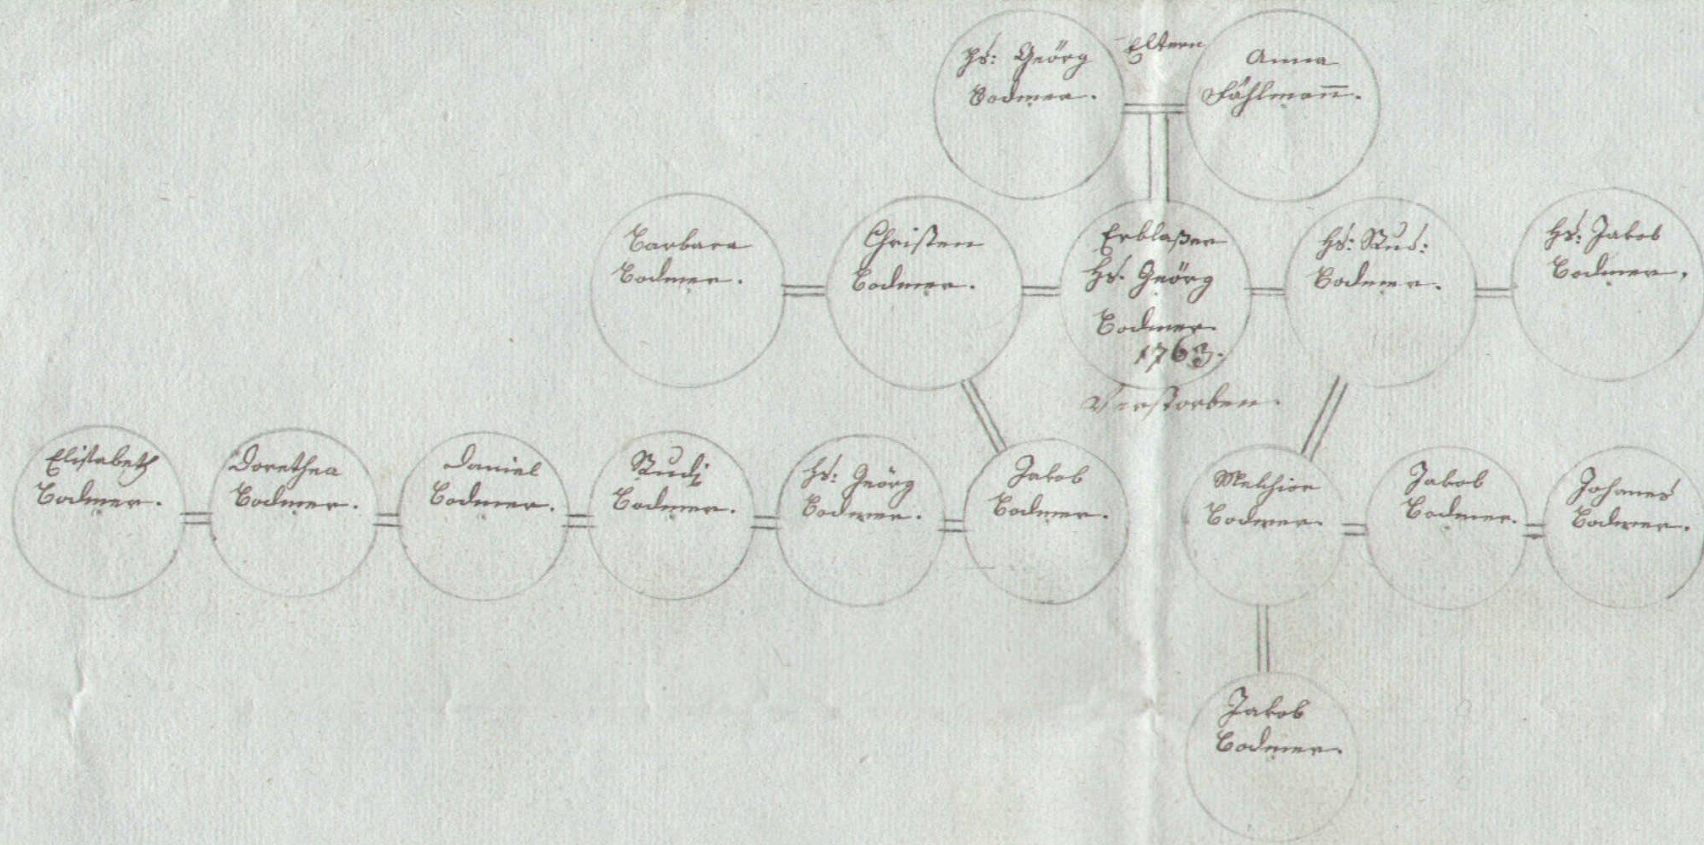 Hs: Geörg
Bodmer.
Eltern
Anna
Fählmañ.
Barbara
Bodmer.
Christen
Bodmer.
Erblaßer
Hs. Geörg
Bodmer
1763.
Verstorben.
Hs: Rud:
Bodmer.
Hs: Jakob
Bodmer.
Elisabeth
Bodmer.
Dorethea
Bodmer.
Daniel
Bodmer.
Rudj
Bodmer.
Hs: Geörg
Bodmer.
Jakob
Bodmer.
Melchior
Bodmer.
Jakob
Bodmer.
Johanes
Bodmer.
Jakob
Bodmer.